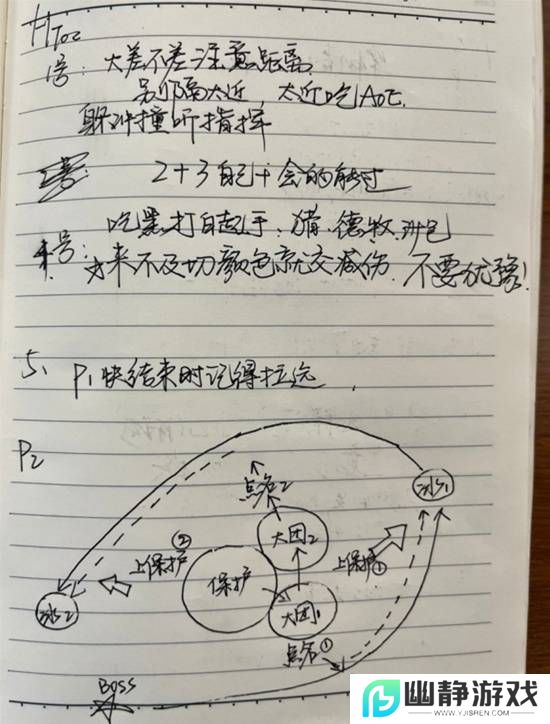 HToc
1号: 大差不差注意距离
别隔太近, 太近吃AoE.
躲冲撞听指挥
2+3自己+会的能过
吃黑打白起手, 猎、德、牧
4号: 来不及切颜色就交减伤. 不要犹豫!
5、P1快结束时记得拉远
P2
点名2
冰1
大团2
②
上保护
上保护
①
保护
冰2
大团1
点名①
BOSS
幽静游戏
WWW.YJISREN.COM